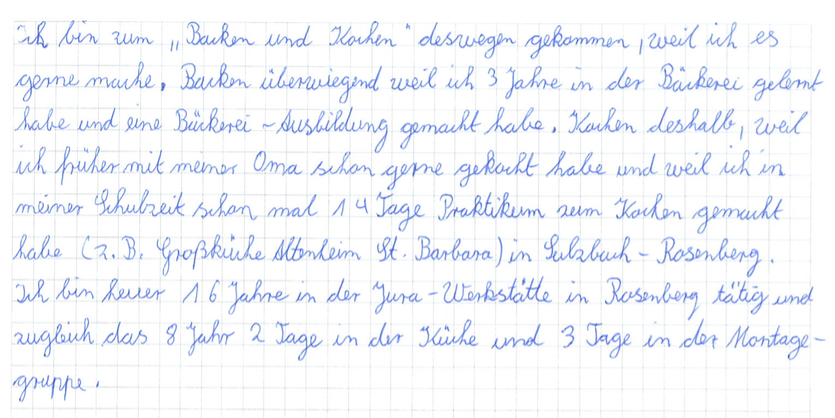 Ich bin zum „Backen und Kochen" deswegen gekommen, weil ich es
gerne mache. Backen überwiegend weil ich 3 Jahre in der Bäckerei gelernt
habe und eine Bäckerei-Ausbildung gemacht habe. Kochen deshalb, weil
ich früher mit meiner Oma schon gerne gekocht habe und weil ich in
meiner Schulzeit schon mal 14 Tage Praktikum zum Kochen gemacht
habe (z.B. Großküche Altenheim St. Barbara) in Sulzbach-Rosenberg.
Ich bin heuer 16 Jahre in der Jura-Werkstätte in Rosenberg tätig und
zugleich das 8 Jahr 2 Tage in der Küche und 3 Tage in der Montage-
gruppe.